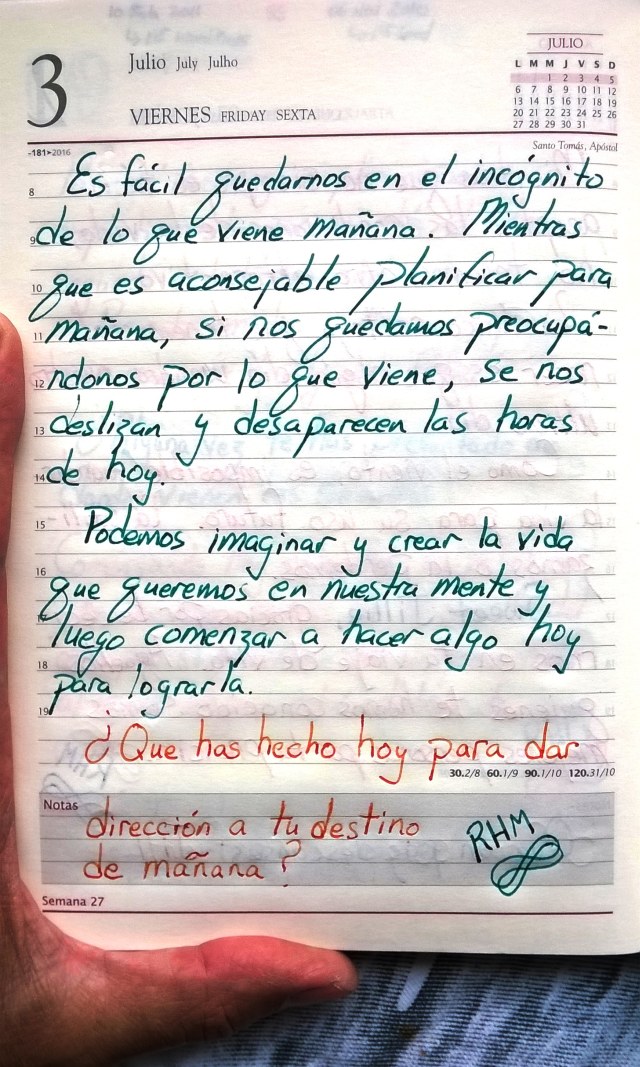 3
Julio July Julho
VIERNES FRIDAY SEXTA
JULIO
L M M J V S D
1 2 3 4 5
6 7 8 9 10 11 12
13 14 15 16 17 18 19
20 21 22 23 24 25 26
27 28 29 30 31
-181▸2016
Santo Tomás, Apóstol
8 Es fácil quedarnos en el incógnito
9 de lo que viene mañana. Mientras
10 que es aconsejable planificar para
11 mañana, si nos quedamos preocupá-
12 ndonos por lo que viene, se nos
13 deslizan y desaparecen las horas
14 de hoy.
15 Podemos imaginar y crear la vida
16 que queremos en nuestra mente y
17 luego comenzar a hacer algo hoy
18 para lograrla.
19 ¿Que has hecho hoy para dar
30.2/8 60.1/9 90.1/10 120.31/10
Notas
dirección a tu destino
de mañana?
RHM
Semana 27